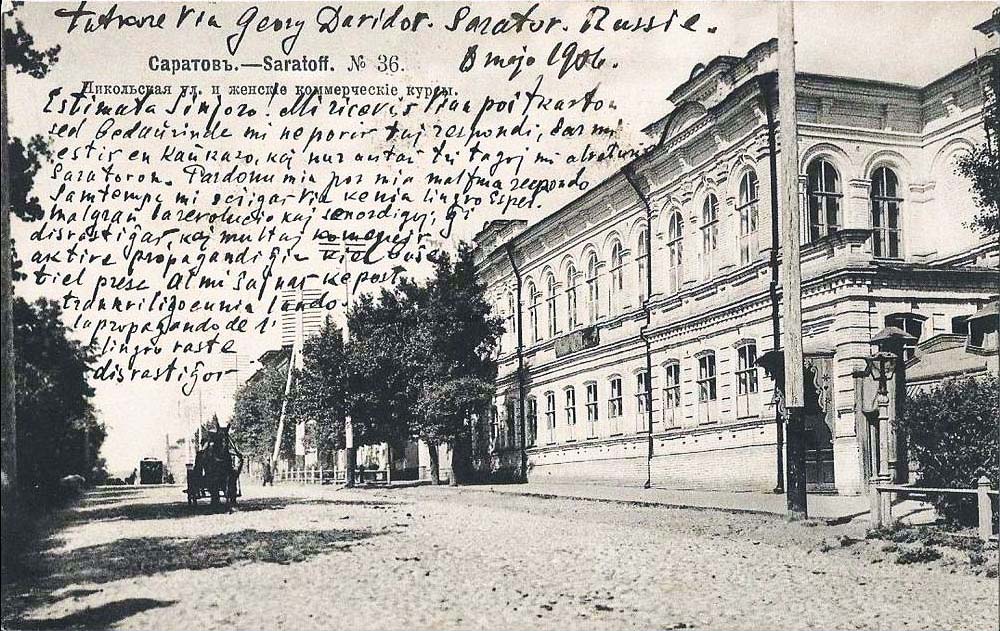 Tutkore via Georg Davidov. Saratov. Russie.
8 majo 1906.
Саратовъ.—Saratoff. № 36.
Никольская ул. и женскіе коммерческіе курсы.
Estimata Sinjoro! Mi ricevis Vian poŝtkarton
sed bedaŭrinde mi ne povis tuj respondi, ĉar mi
estis en Kaŭkazo, kaj nur antaŭ tri tagoj mi alveturis
Saratovon. Pardonu min por mia malfrua respondo
Samtempe mi sciigas Vin ke nia lingvo Esper.
malgraŭ la revolucio kaj senordigoj, ĝi
disvastiĝas, kaj multaj komencis
aktive propagandi ĝin kiel buŝe
tiel prese. Al mi ŝajnas ke post
trankviliĝo en nia lando
la propagando de l'
lingvo vaste
disvastiĝos